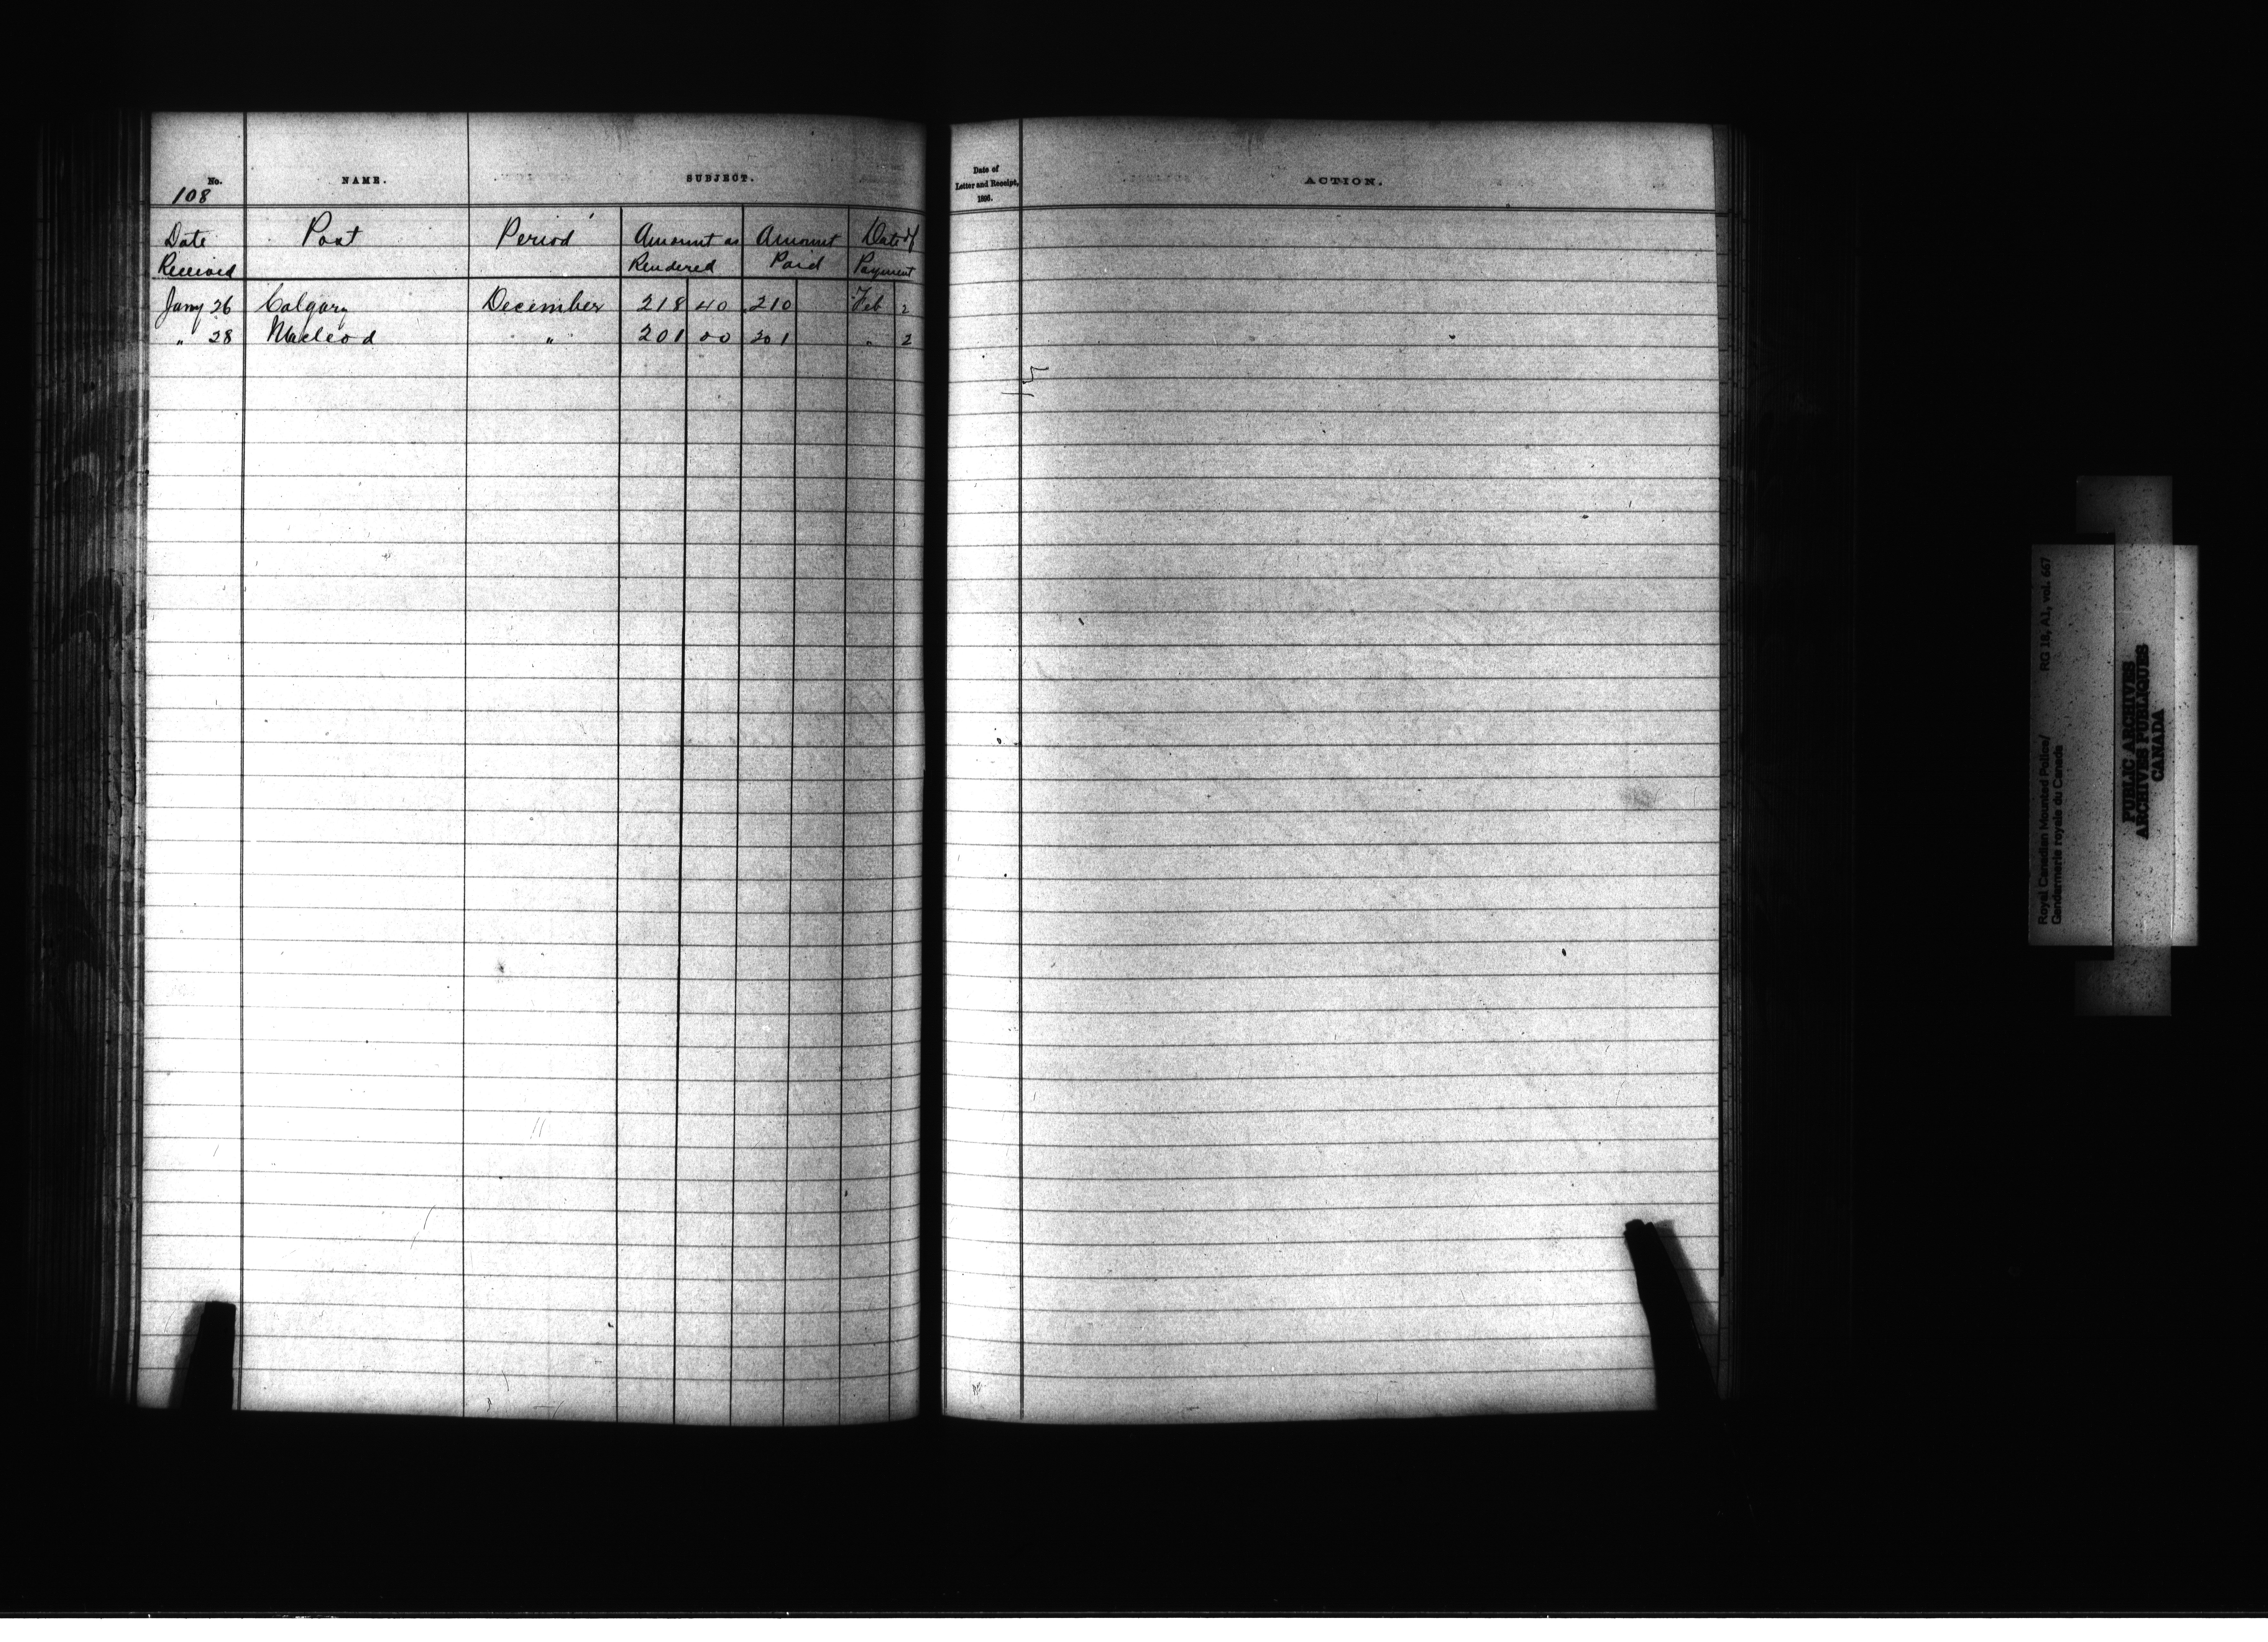 No. NAME. SUBJECT.
108
Date Post Period Amount as Amount Date of
Received Rendered Paid Payment
Jany 26 Calgary December 218 40 210 Feb 2
" 28 Macleod " 201 00 201 " 2
Date of
Letter and Receipt,
1896.
ACTION.
Royal Canadian Mounted Police/ RG 18, A1, vol. 667
Gendarmerie royale du Canada
PUBLIC ARCHIVES
ARCHIVES PUBLIQUES
CANADA